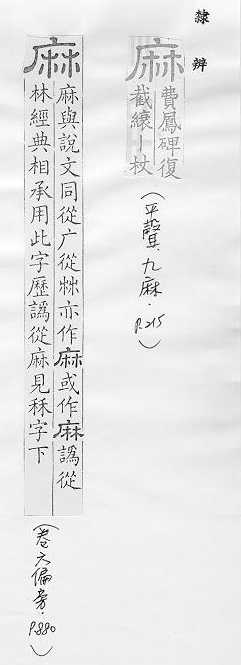 隸辨
麻
費鳳碑復
截縗丨杖
(平聲.九麻.P.215)
麻
麻與說文同從广從𣏟亦作麻或作麻譌從
林經典相承用此字歷譌從麻見秝字下
(卷六偏旁.P.880)